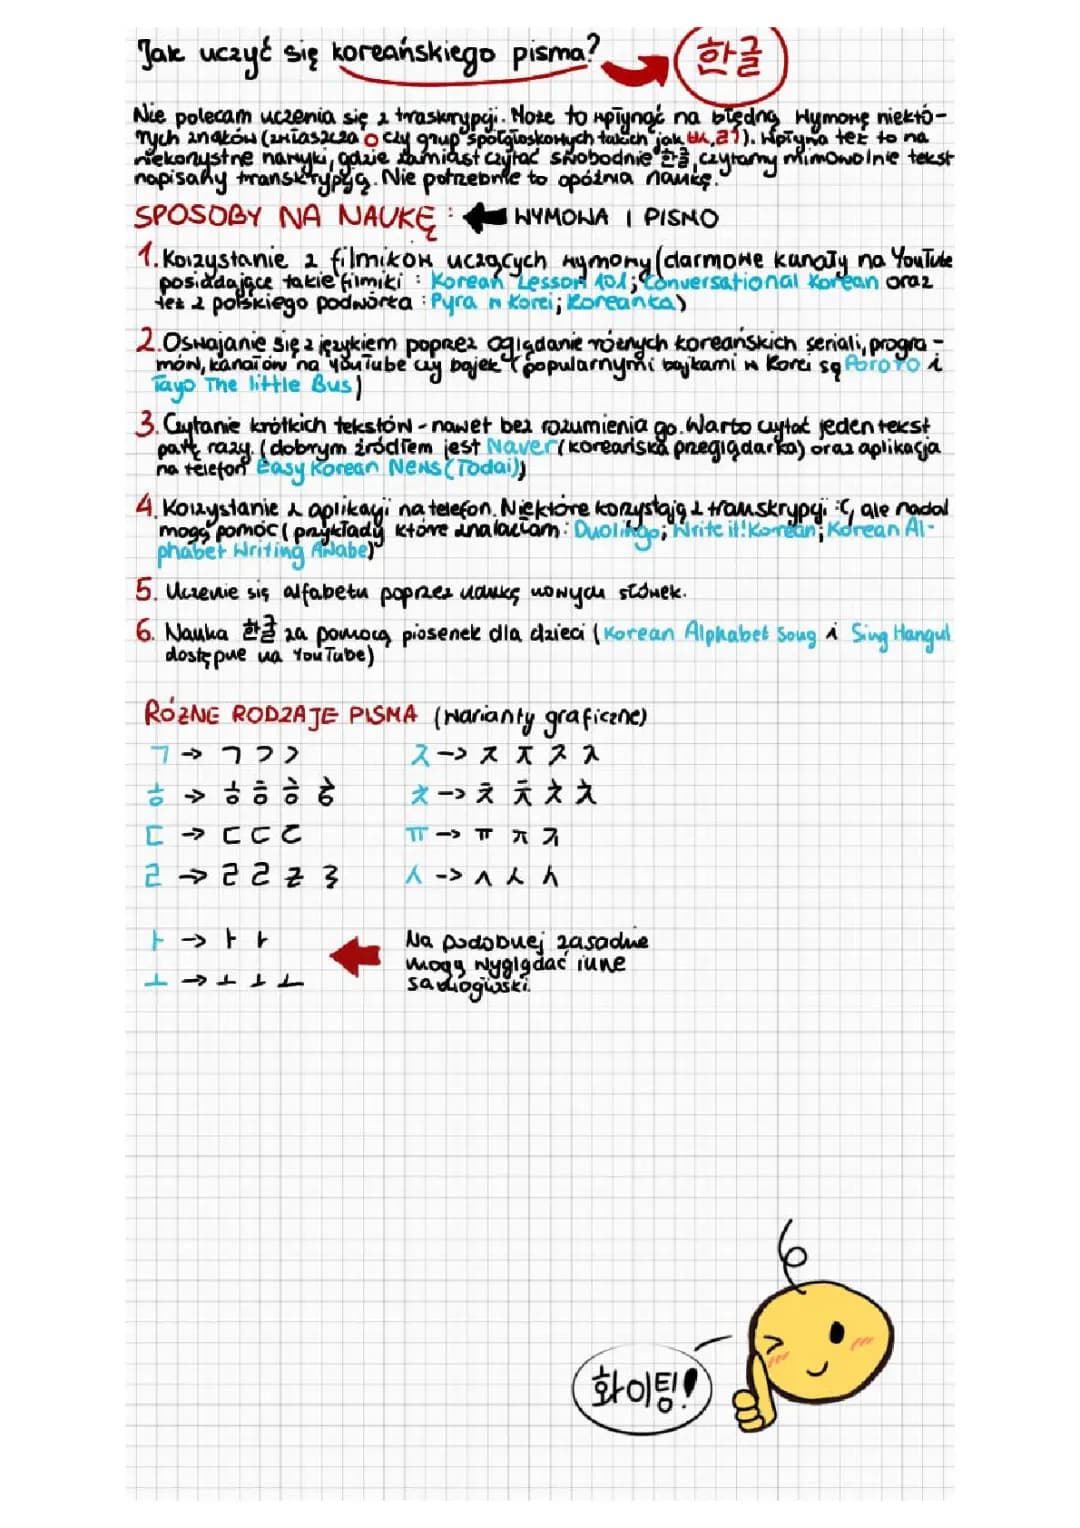 Jak uczyć się koreańskiego pisma? 한글
Nie polecam uczenia się z traskrypcji. Może to wpłynąć na błędną wymowę niektó-
rych znaków (zwłaszcza o czy grup spółgłoskowych takich jak ㅄ,ㄺ). Wpływa też to na
niekorzystne nawyki, gdzie zamiast czytać swobodnie 한글, czytamy mimowolnie tekst
napisany transkrypcją. Nie potrzebnie to opóźnia naukę.
SPOSOBY NA NAUKĘ : WYMOWA I PISMO
1. Korzystanie z filmików uczących wymowy (darmowe kanały na YouTube
posiadające takie filmiki : Korean Lesson 101; Conversational Korean oraz
też z polskiego podwórka : Pyra w Korei; Koreanka)
2. Oswajanie się z językiem poprzez oglądanie różnych koreańskich seriali, progra-
mów, kanałów na YouTube czy bajek (popularnymi bajkami w Korei są Pororo i
Tayo The little Bus)
3. Czytanie krótkich tekstów - nawet bez rozumienia go. Warto czytać jeden tekst
parę razy. (dobrym źródłem jest Naver (koreańska przeglądarka) oraz aplikacja
na telefon Easy Korean News (Todai))
4. Korzystanie z aplikacji na telefon. Niektóre korzystają z transkrypcji :(, ale nadal
mogą pomóc (przykłady które znalazłam: Duolingo; Write it! Korean; Korean Al-
phabet Writing Awabe)
5. Uczenie się alfabetu poprzez naukę nowych słówek.
6. Nauka 한글 za pomocą piosenek dla dzieci (Korean Alphabet Song i Sing Hangul
dostępne na YouTube)
RÓŻNE RODZAJE PISMA (warianty graficzne)
ㄱ -> ㄱ ㄱ ㄱ
ㅎ -> ㅎ ㅎ ㅎ ㅎ
ㄷ -> ㄷ ㄷ ㄷ
ㄹ -> ㄹ ㄹ ㄹ ㄹ
ㅏ -> ㅏ ㅏ
ㅗ -> ㅗ ㅗ ㅗ
ㅈ -> ㅈ ㅈ ㅈ ㅈ
ㅊ -> ㅊ ㅊ ㅊ ㅊ
ㅠ -> ㅠ ㅠ ㅠ
ㅅ -> ㅅ ㅅ ㅅ
Na podobnej zasadnie
mogą wyglądać inne
samogłoski.
화이팅!